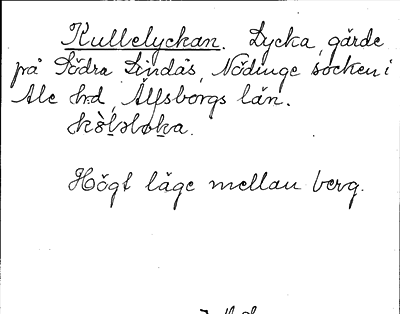 Kullelyckan. Lycka, gärde
på Södra Lindås, Nödinge socken i
Ale hrd, Älfsborgs län.
Högt läge mellan berg.